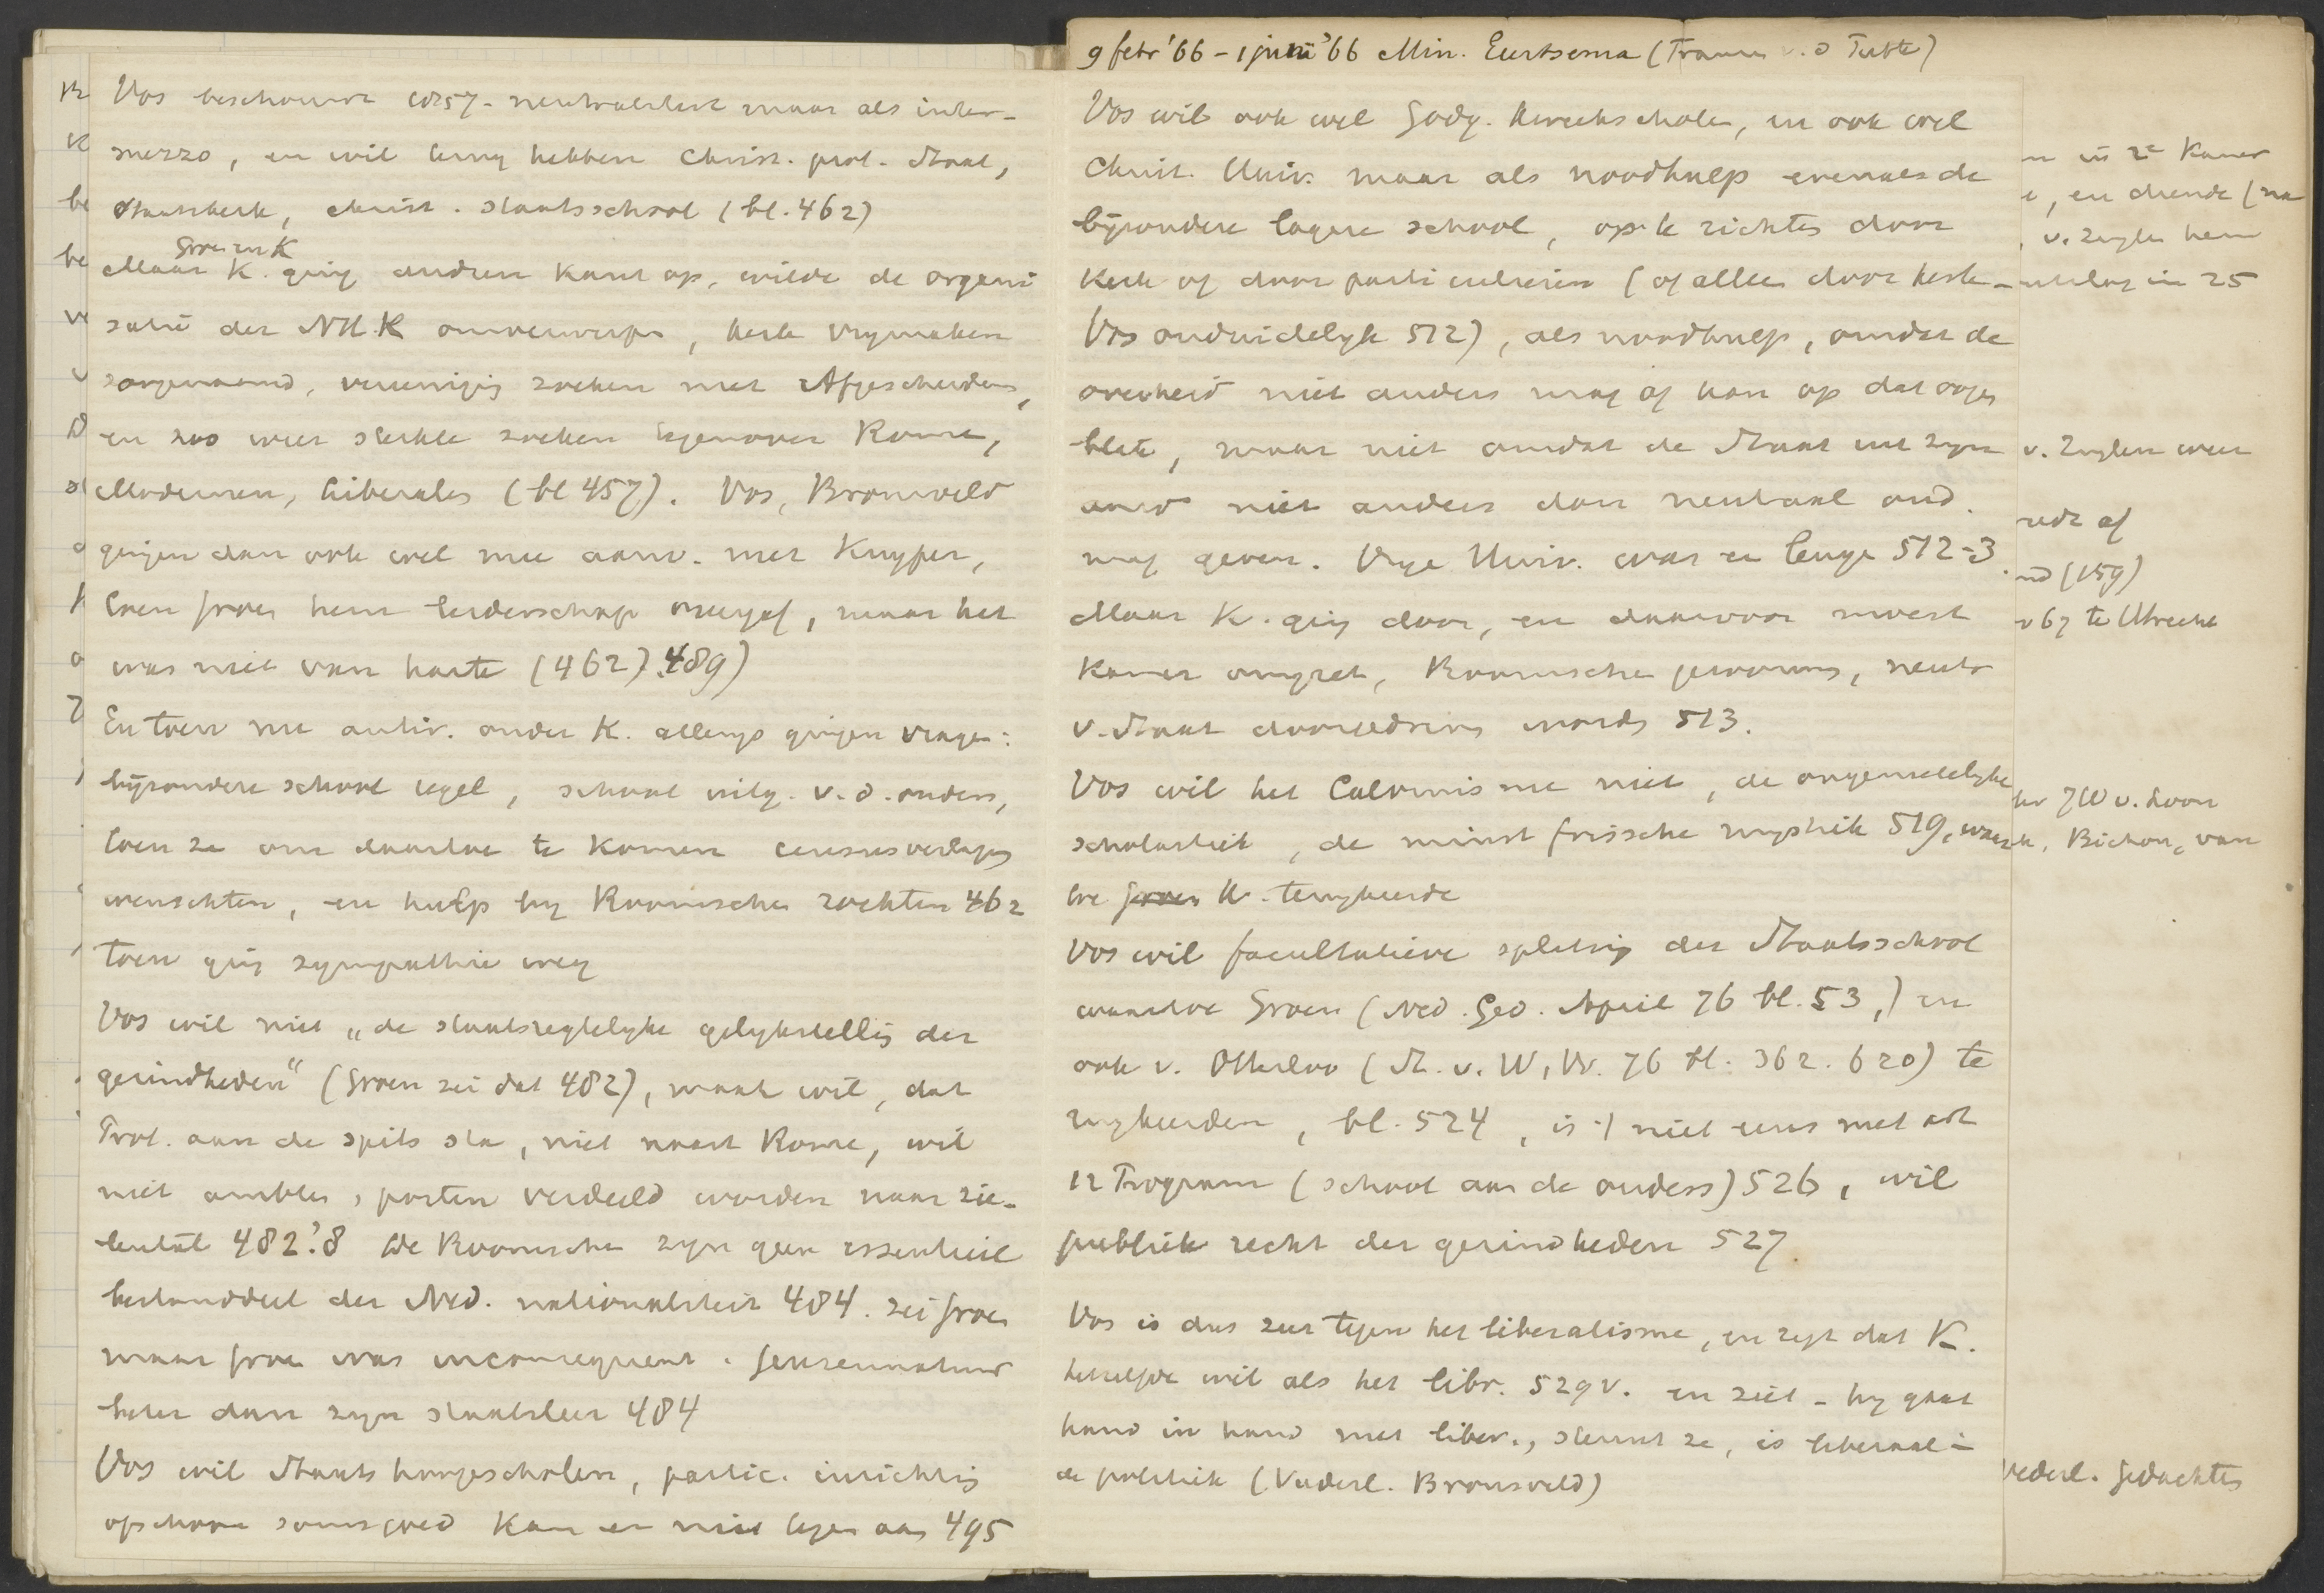 Vos beschouwt wet 57 - neutraliteit maar als inter-
mezzo, en wil terug hebben Christ. prot. Staat,
Staatskerk, christ. staatsschool (bl. 462)
Groen en K
Maar K. ging andren kant op, wilde de organi
satie der NH.K omverwerpen, kerk vrymaken
zoogenaamd, vereeniging zoeken met Afgescheidenen,
en zoo weer sterkte zoeken tegenover Rome,
Modernen, Liberalen (bl 457). Vos, Bronsveld
gingen dan ook wel mee aanv. met Kuyper,
toen Groen hem leiderschap overgaf, maar het
was niet van harte (462). 489)
En toen nu antir. onder K. allengs gingen vragen:
byzondere school regel, school uitg. v. d. ouders,
toen ze om daartoe te komen censusverlaging
wenschten, en hulp by Roomschen zochten 462
toen ging sympathie weg
Vos wil niet „de staatsregtelyke gelykstelling der
gezindheden" (Groen zei dat 482), maar wil, dat
Prot. aan de spits sta, niet naast Rome, wil
niet ambten, posten verdeeld worden naar zie-
lental 482.'8 De Roomschen zyn geen essentieel
bestanddeel der Ned. nationaliteit 484. zei Groen
maar Groen was inconsequent.
beter dan zyn staatsleer 484
Vos wil Staats hoogescholen, partic. inrichting
ofschoon soms goed kan er niet tegen aan 495
9 febr '66 - 1 juni '66 Min. Eerksema (Frans v. d Putte)
Vos wil ook wel Godg. kweekscholen, en ook wel
Christ. Univ. maar als noodhulp evenals de
byzondere lagere school, op te richten door
Kerk of door particulieren (of alleen door kerk -
Vos onduidelyk 512), als noodhulp, omdat de
overheid niet anders mag of kan op dat oogen
blik, maar niet omdat de Staat uit zyn
aard niet anders dan neutraal ond.
mag geven. Vrye Univ. was er tegen 512-3.
Maar K. ging door, en daarvoor moest
Kamer omgezet, Roomschen gewonnen, neutr
v. Staat doorgedreven worden 513.
Vos wil het Calvinisme niet, de ongenietelyke
scholastiek, de minst frissche mystiek 519, waar
toe Groen K. terugkeerde
Vos wil facultatieve splitsing der Staatsschool
waartoe Groen (Ned. Ged. April 76 bl. 53,) en
ook v. Otterloo (St. v. W, Vr. 76 bl. 362. 620) te
rugkeerden, bl. 524, is't niet eens met art
12 Program (school aan de ouders) 526, wil
publiek recht der gezindheden 527.
Vos is dus zeer tegen het liberalisme, en zegt dat K.
hetzelfde wil als het libr. 529 v. en ziet - hy gaat
hand in hand met liber., steunt ze, is liberaal in
de politiek (Vaderl. Bronsveld)
in 2e Kamer
, en diende (na
, v. Zuylen hem
in 25
v. Zuylen weer
rede af
(159)
67 te Utrecht
JW v. Loon
, Bichon, van
Nederl. Gedachten